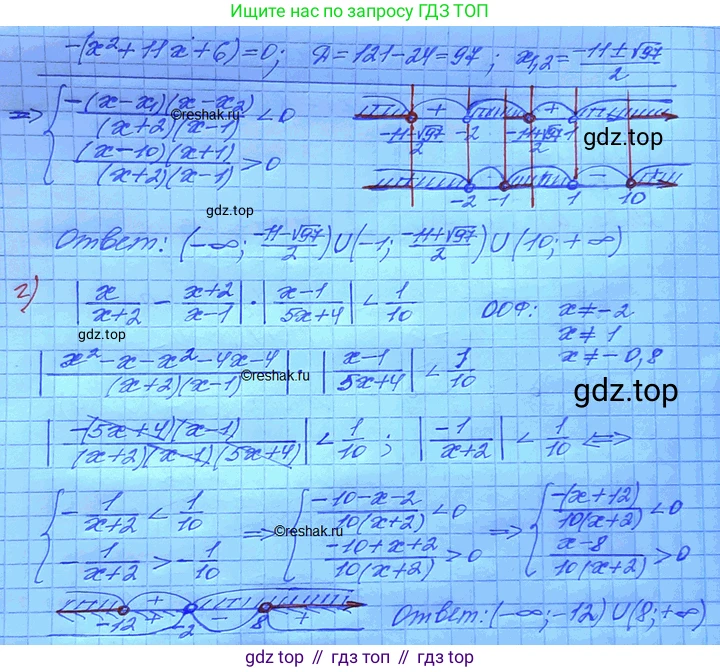 Ищите нас по запросу ГДЗ ТОП
-(x²+11x+6)=0; Д=121-24=97; x₁,₂=(-11±√97)/2
=> { -(x-x₁)(x-x₂)/((x+2)(x-1)) < 0
(x-10)(x+1)/((x+2)(x-1)) > 0
©reshak.ru
+ +
(-11-√97)/2 -2 (-11+√97)/2 1
gdz.top
-
-2 -1 1 10
gdz.top
Ответ: (-∞; (-11-√97)/2)∪(-1; (-11+√97)/2)∪(10; +∞)
г) |x/(x+2) - (x+2)/(x-1)|·|(x-1)/(5x+4)| < 1/10 ООФ: x≠-2
x≠1
x≠-0,8
gdz.top
|(x²-x-x²-4x-4)/((x+2)(x-1))| |(x-1)/(5x+4)| < 1/10
©reshak.ru
gdz.top
|-(5x+4)(x-1)/((x+2)(x-1)(5x+4))| < 1/10; |-1/(x+2)| < 1/10 <=>
{ -1/(x+2) < 1/10 => { (-10-x-2)/(10(x+2)) < 0 => { -(x+12)/(10(x+2)) < 0
-1/(x+2) > -1/10 (-10+x+2)/(10(x+2)) > 0 (x-8)/(10(x+2)) > 0
©reshak.ru
+
-12 + -2 - 8 +
Ответ: (-∞; -12)∪(8; +∞)
gdz.top // гдз.топ // гдз.top